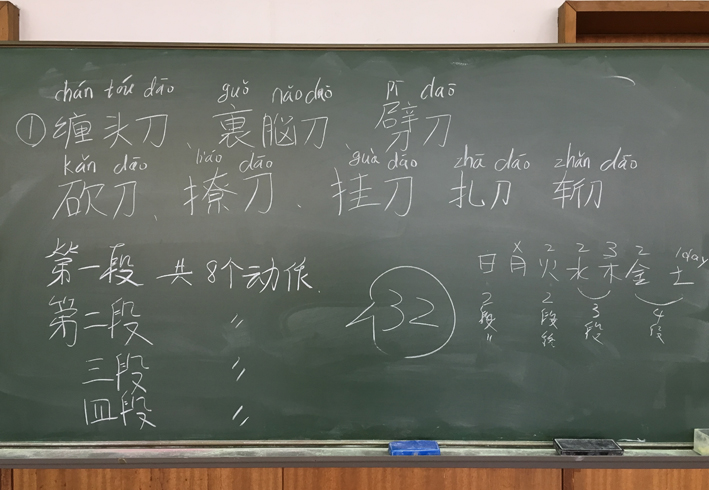 chán tóu dāo guǒ nǎo dāo pī dāo
① 缠头刀、裹脑刀、劈刀
kǎn dāo liāo dāo guà dāo zhā dāo zhǎn dāo
砍刀、撩刀、挂刀 扎刀 斩刀
第一段 共8个动作
第二段 〃
三段 〃
四段 〃
32
x 2 2 3 2 1day
日 月 火 水 木 金 土
2段〃 2段 3段 4段